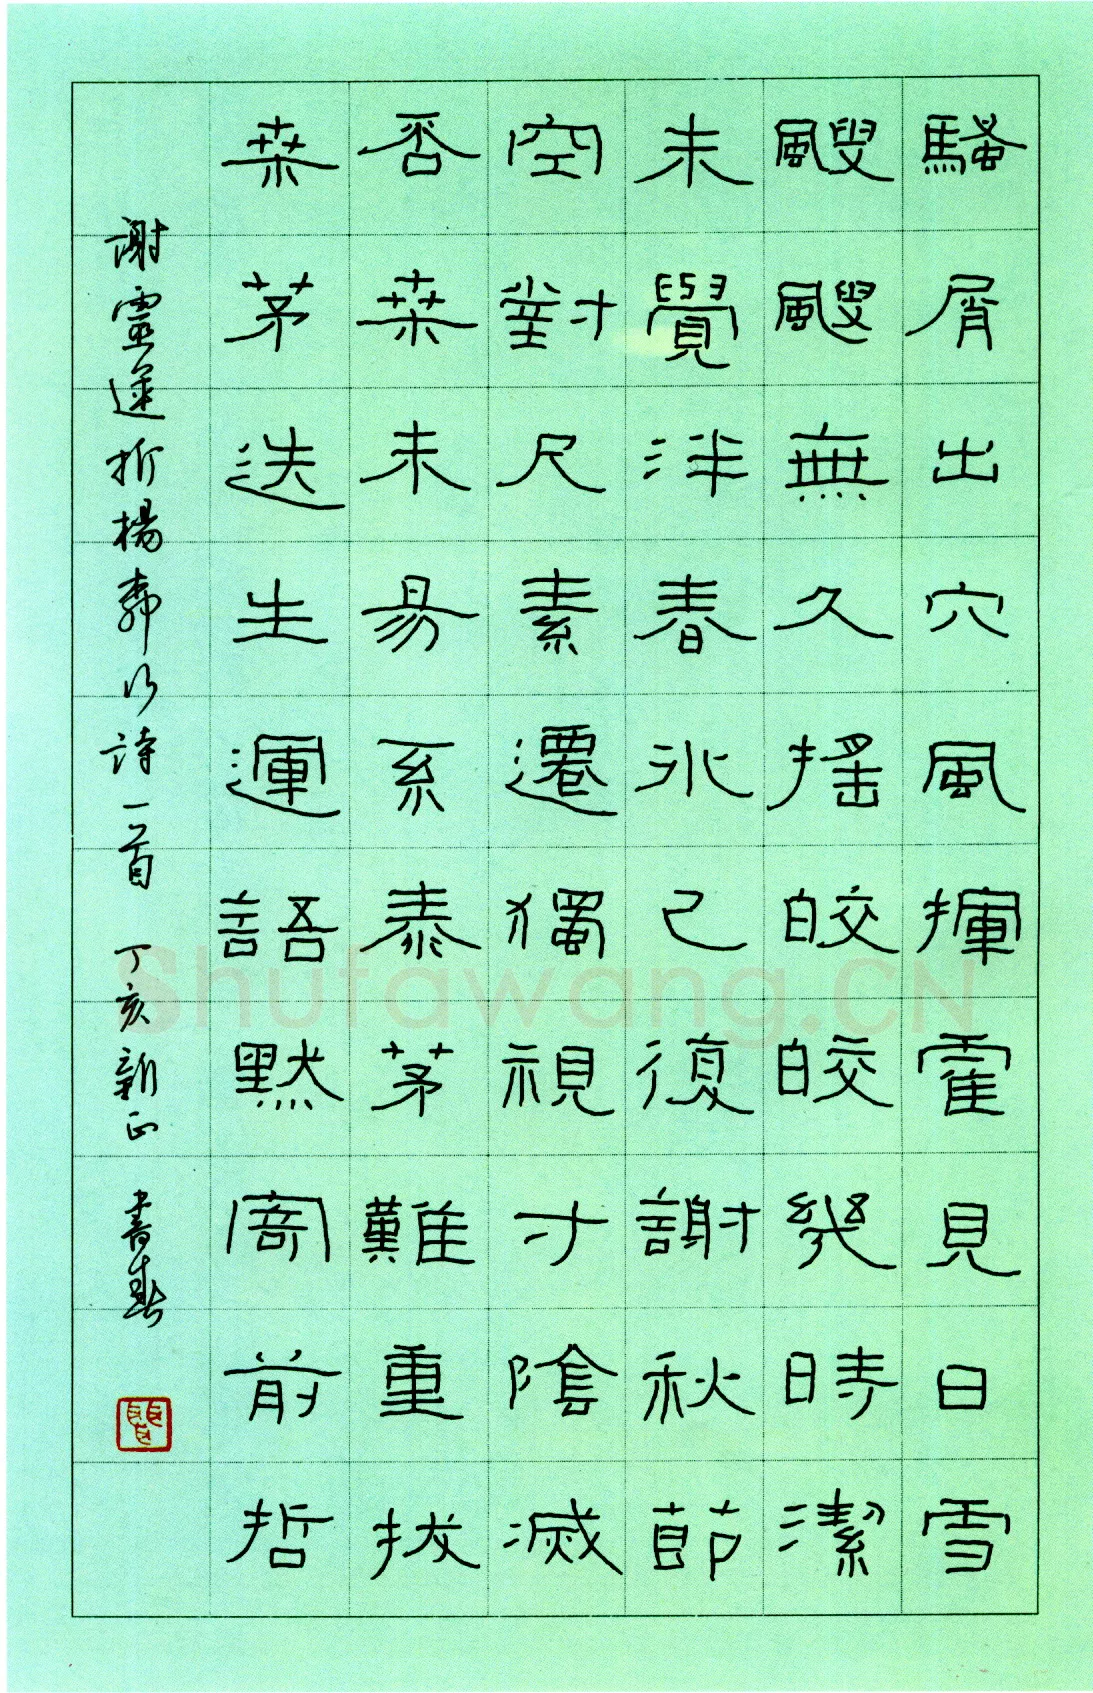 騷屑出穴風揮霍見日雪
颼颼無久搖皎皎幾時潔
未覺泮春冰已復謝秋節
空對尺素遷獨視寸陰滅
否桒未易系泰茅難重拔
桒茅迭生運語默寄前哲
謝靈運折楊柳行詩一首 丁亥新正 書
Shufawang.CN